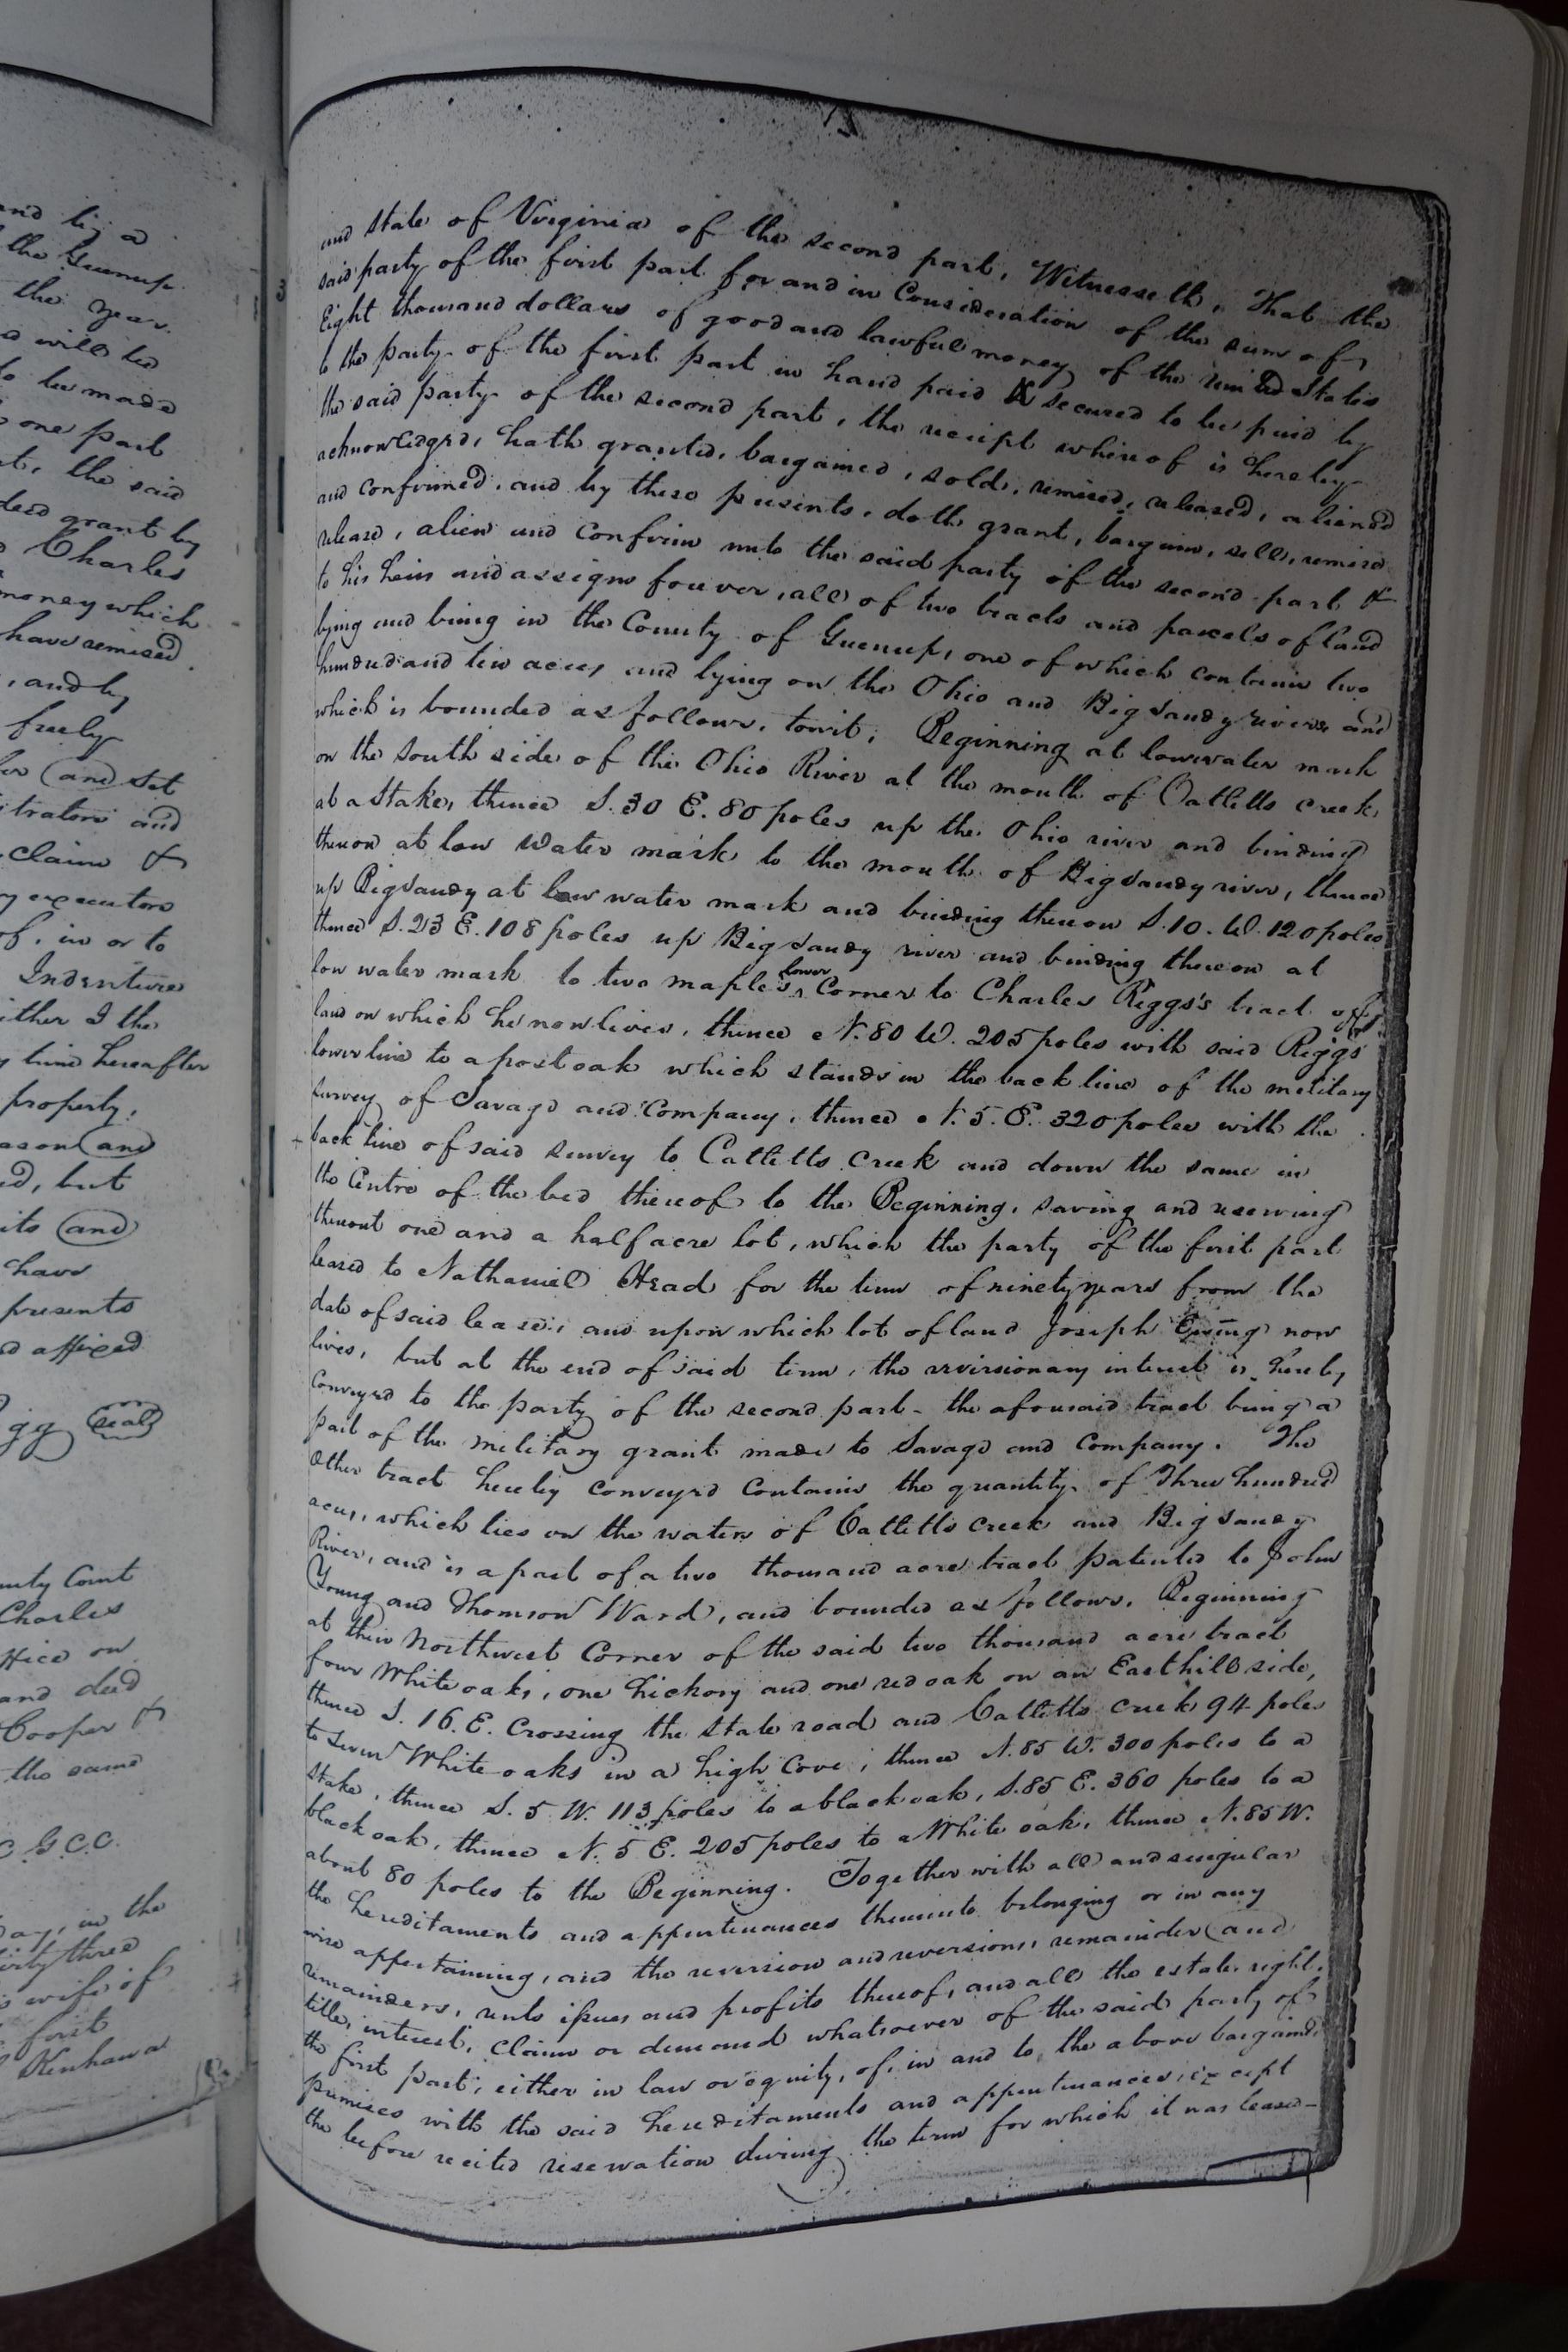 and lig a
the Greenup
the year
a will led
to be made
one part
the said
deed grant by
Charles
money which
have remised
, and by
freely
(and) set
trators and
claim &
executors
of, in or to
Indenture
either I the
time hereafter
property,
(and)
ed, but
its (and)
have
presents
affixed
gg (seal)
County Court
Charles
office on
and deed
Cooper &
the same
C.G.C.C.
day, in the
thirty three
wife of
first
Kenhawa
and state of Virginia of the second part, Witnesseth, That the
said party of the first part for and in Consideration of the sum of
Eight thousand dollars of good and lawful money of the united States
to the party of the first part in hand paid & secured to be paid by
the said party of the second part, the receipt whereof is hereby
acknowledged, hath granted, bargained, sold, remised, released, aliened
and confirmed, and by these presents, doth grant, bargain, sell, remise
release, alien and confirm unto the said party of the second part &
to his heirs and assigns forever, all of two tracts and parcels of land
lying and being in the County of Greenup, one of which contains two
hundred and ten acres, and lying on the Ohio and Big Sandy rivers and
which is bounded as follows, towit; Beginning at low water mark
on the South side of the Ohio River at the mouth of Catletts creek,
at a Stake, thence S. 30 E. 80 poles up the Ohio river and binding
thereon at low water mark to the mouth of Big Sandy river, thence
up Big Sandy at low water mark and binding thereon S. 10. W. 120 poles
thence S. 23 E. 108 poles up Big Sandy river and binding thereon at
low water mark to two maples, lower Corner to Charles Riggs's tract of
land on which he now lives, thence N. 80 W. 205 poles with said Riggs'
lower line to a post oak which stands in the back line of the military
survey of Savage and Company, thence N. 5. E. 320 poles with the
back line of said survey to Catletts Creek and down the same in
the Centre of the bed thereof to the Beginning, saving and reserving
thereout one and a half acre lot, which the party of the first part
leased to Nathaniel Head for the term of ninety years from the
date of said lease, and upon which lot of land Joseph Ewing now
lives, but at the end of said term, the reversionary interest is hereby
Conveyed to the party of the second part - the aforesaid tract being a
part of the military grant made to Savage and Company. The
other tract hereby conveyed contains the quantity of Three hundred
acres, which lies on the waters of Catletts creek and Big Sandy
River, and is a part of a two thousand acre tract patented to John
Young and Thomson Ward, and bounded as follows. Beginning
at their Northwest Corner of the said two thousand acre tract
four White oaks, one hickory and one red oak on an East hill side,
thence S. 16. E. Crossing the State road and Catletts creek 94 poles
to Seven White oaks in a high Cove; thence N. 85 W. 300 poles to a
stake, thence S. 5 W. 113 poles to a black oak, S. 85 E. 360 poles to a
black oak, thence N. 5 E. 205 poles to a White oak, thence N. 85 W.
about 80 poles to the Beginning. Together with all and singular
the hereditaments and appurtenances thereunto belonging or in any
wise appertaining, and the reversion and reversions, remainder (and
remainders, rents issues and profits thereof, and all the estate, right,
title, interest, Claim or demand whatsoever of the said party of
the first part, either in law or equity, of, in and to the above bargained
premises with the said hereditaments and appurtenances, except
the before recited reservation during the term for which it was leased-